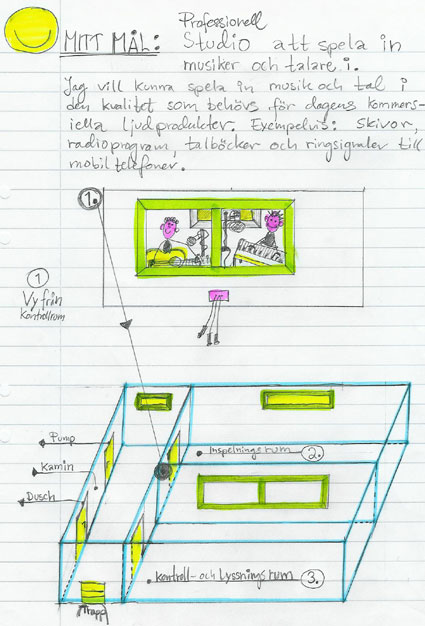 MITT MÅL: Professionell
Studio att spela in
musiker och talare i.
Jag vill kunna spela in musik och tal i
den kvalitet som behövs för dagens kommers-
iella ljudprodukter. Exempelvis: Skivor,
radioprogram, talböcker och ringsignaler till
mobiltelefoner.
1.
1
Vy från
kontrollrum
Pump
Kamin
Dusch
Inspelningsrum 2.
Kontroll- och Lyssningsrum 3.
Trapp